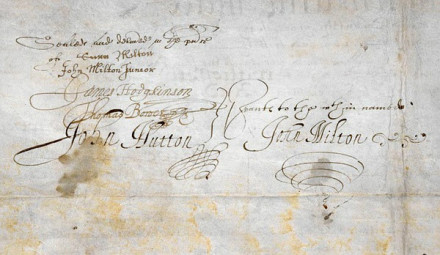 Sealed and delivered in the presence
of
John Milton Junior
James Hodgkinson
Thomas Bower
John Hutton
servants to the within named
John Milton